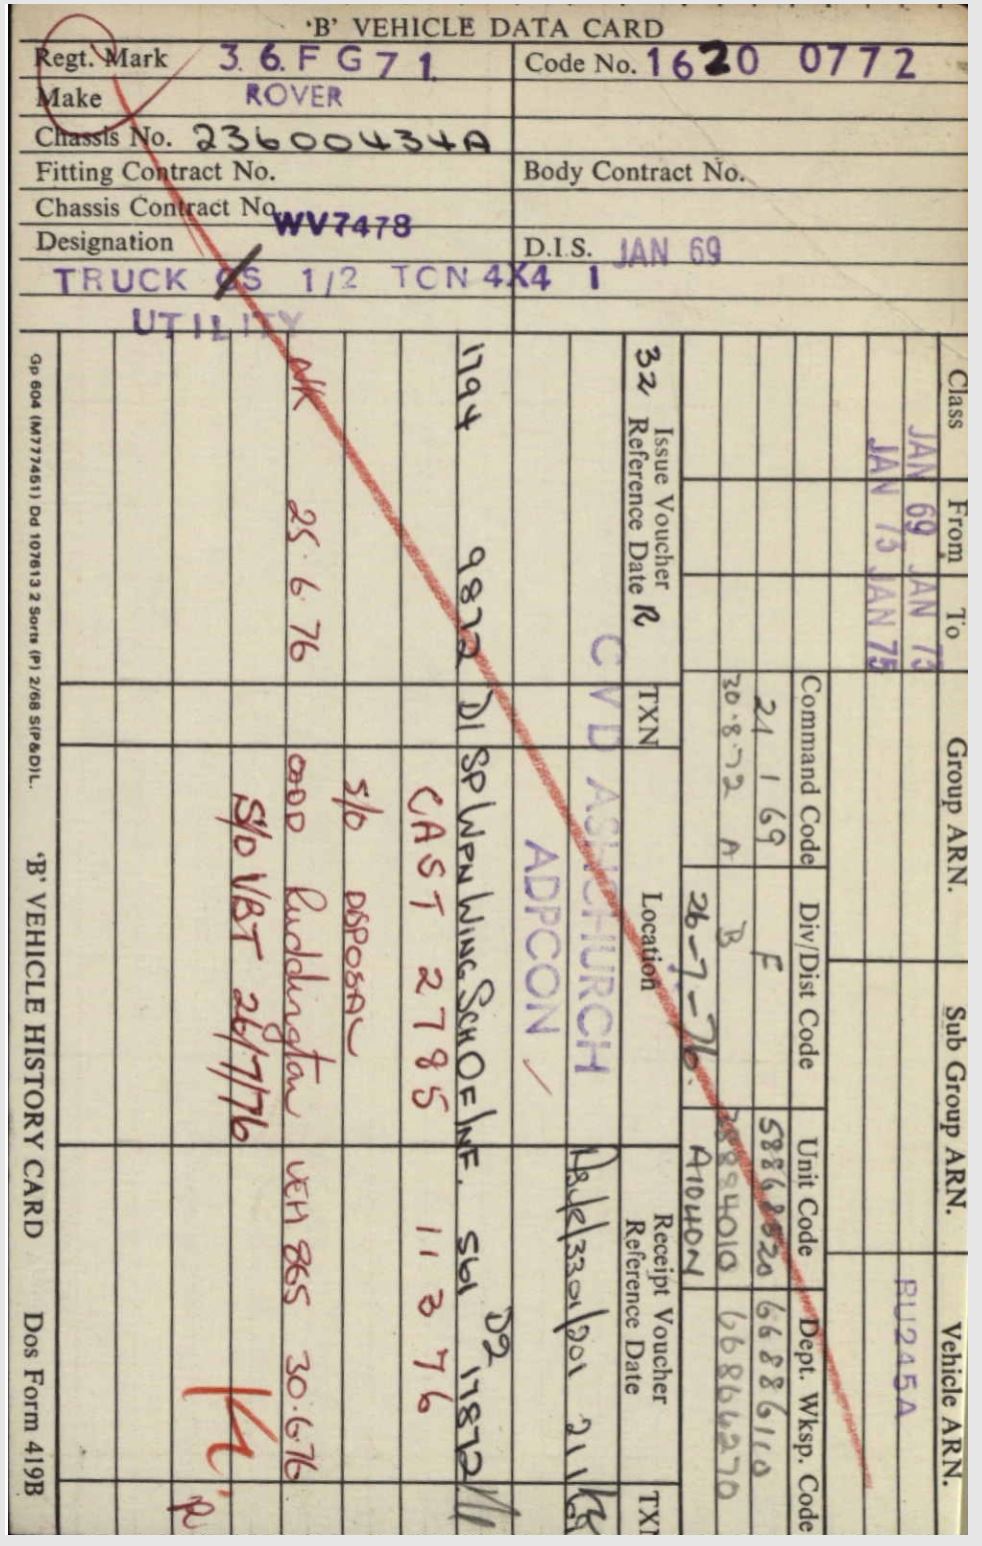 'B' VEHICLE DATA CARD
Regt. Mark 36FG71
Code No. 1620 0772
Make ROVER
Chassis No. 23600434A
Fitting Contract No.
Body Contract No.
Chassis Contract No. WV7478
Designation
D.I.S. JAN 69
TRUCK GS 1/2 TON 4X4 1
UTILITY
Class From To Group ARN. Sub Group ARN. Vehicle ARN.
JAN 69 JAN 73 RU245A
JAN 73 JAN 75
Command Code Div/Dist Code Unit Code Dept. Wksp. Code
21 1 69 F 66886110
30.8.72 A B 66866270
26-7-76. A1040N
32 Issue Voucher Reference Date R TXN Location Receipt Voucher Reference Date TXN
CVD ASHCHURCH
ADPCON
D2
1794 9872 D1 SP WPN WING SCH OF INF. 561 17872
CAST 2785 11 3 76
S/O DISPOSAL
NK 25.6.76 COD Ruddington VEH 865 30.6.76
S/O VBT 26/7/76
'B' VEHICLE HISTORY CARD Dos Form 419B
Gp 604 (M777451) Dd 107613 2 Sorts (P) 2/68 S(P&D)L.